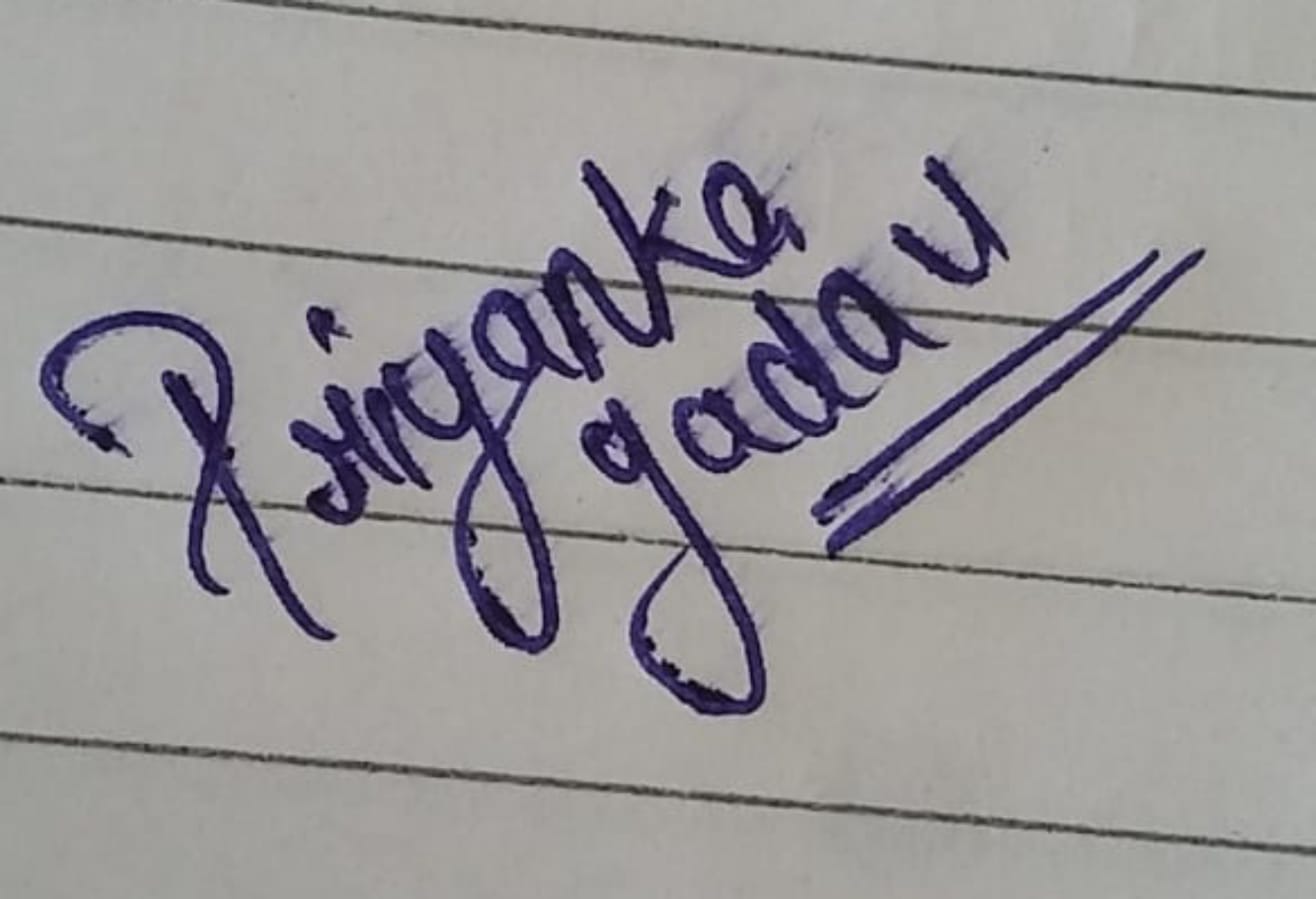 Priyanka
yadav